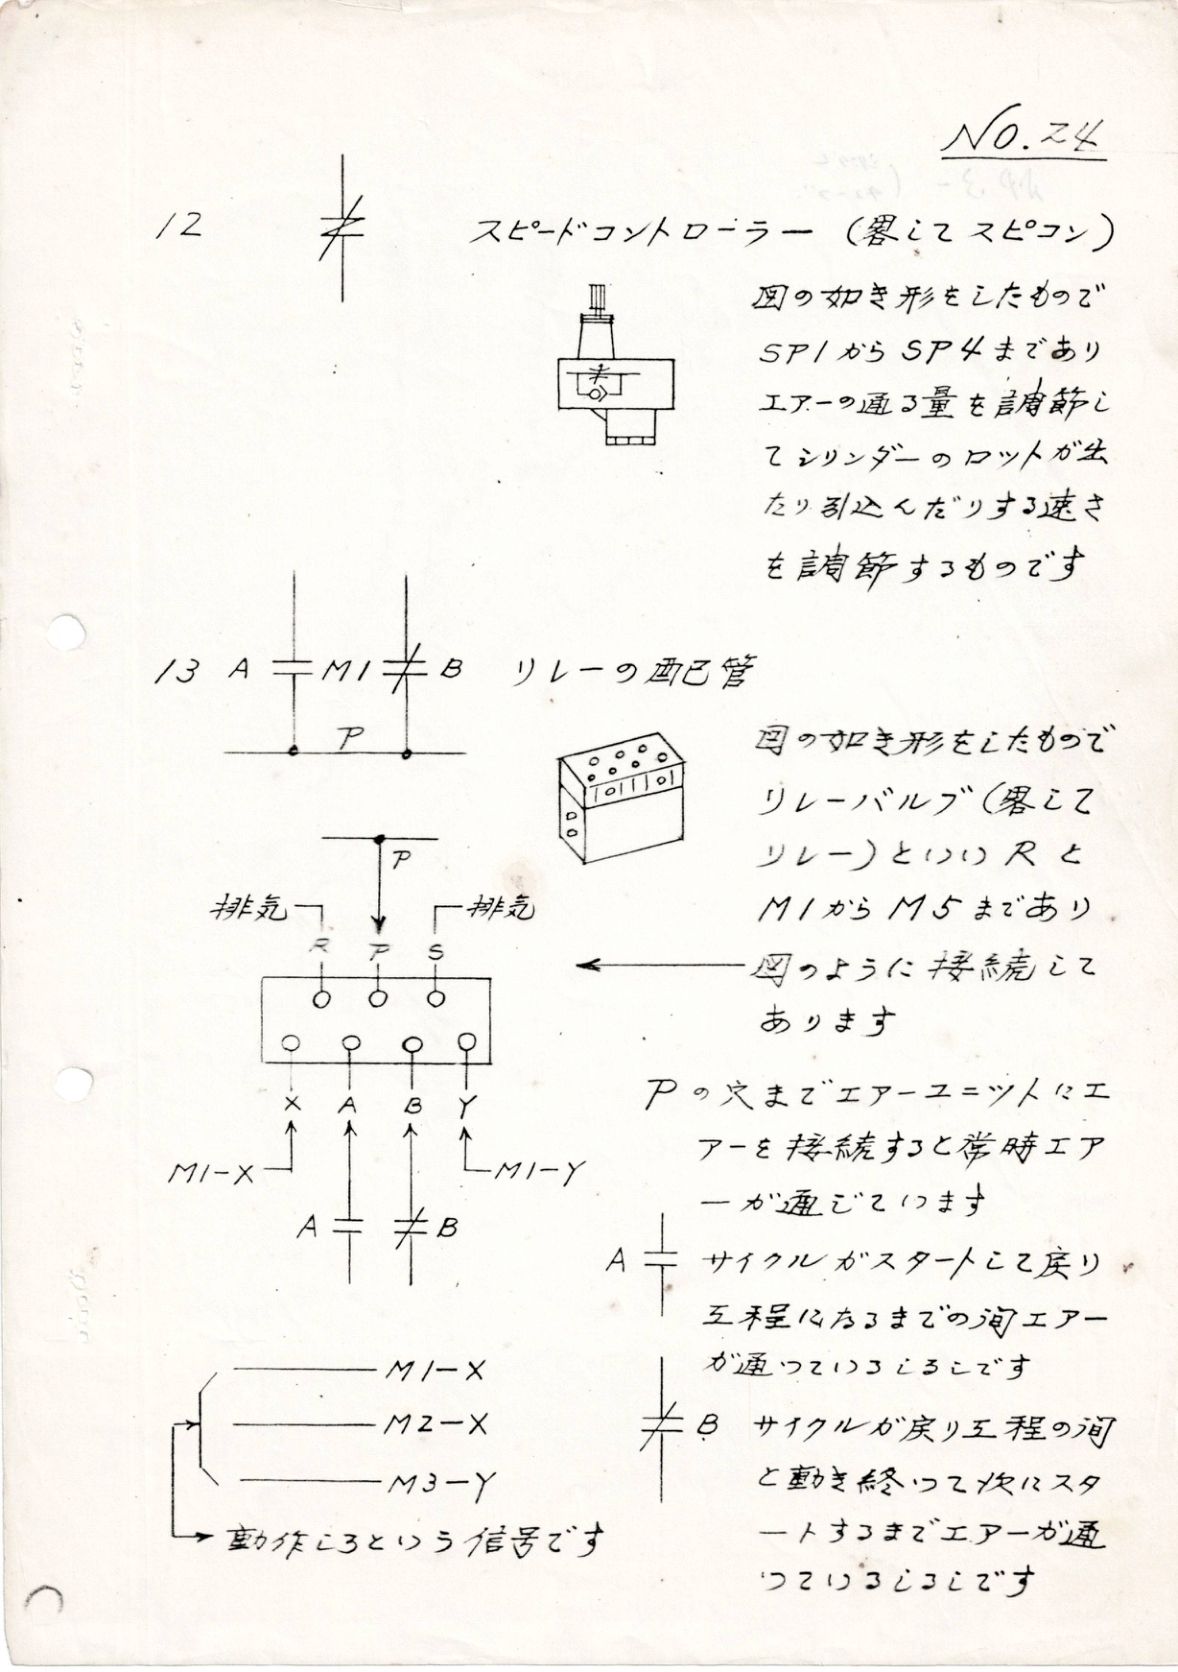 NO.24
12 スピードコントローラー（畧してスピコン）
図の如き形をしたもので
SP1からSP4まであり
エアーの通る量を調節し
てシリンダーのロットが出
たり引込んだりする速さ
を調節するものです
13 A M1 B リレーの配管
P
図の如き形をしたもので
リレーバルブ（畧して
リレー）といいRと
M1からM5まであり
図のように接続して
あります
P
排気 排気
R P S
X A B Y
M1-X M1-Y
A B
Pの穴までエアーユニットにエ
アーを接続すると常時エア
ーが通じています
A サイクルがスタートして戻り
工程になるまでの間エアー
が通つているしるしです
B サイクルが戻り工程の間
と動き終つて次にスタ
ートするまでエアーが通
つているしるしです
M1-X
M2-X
M3-Y
動作しろという信号です